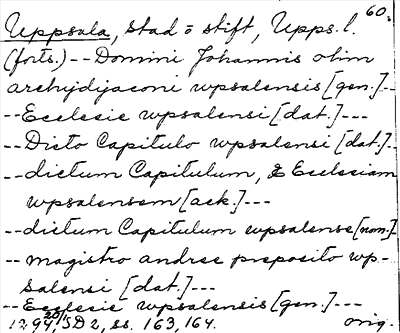 60.
Uppsala, stad o stift, Upps. l.
(forts.) -- Domini Johannis olim
archydijaconi wpsalensis [gen.]--
-- Ecclesie wpsalensi [dat.]---
-- Dicto Capitulo wpsalensi [dat.]--
-- dictum Capitulum, & Ecclesiam
wpsalensem [ack.]---
-- dictum Capitulum wpsalense [nom.]
-- magistro andree preposito wp-
salensi [dat.]---
-- Ecclesie wpsalensis [gen.]---
1294 SD 2, ss. 163, 164. orig.